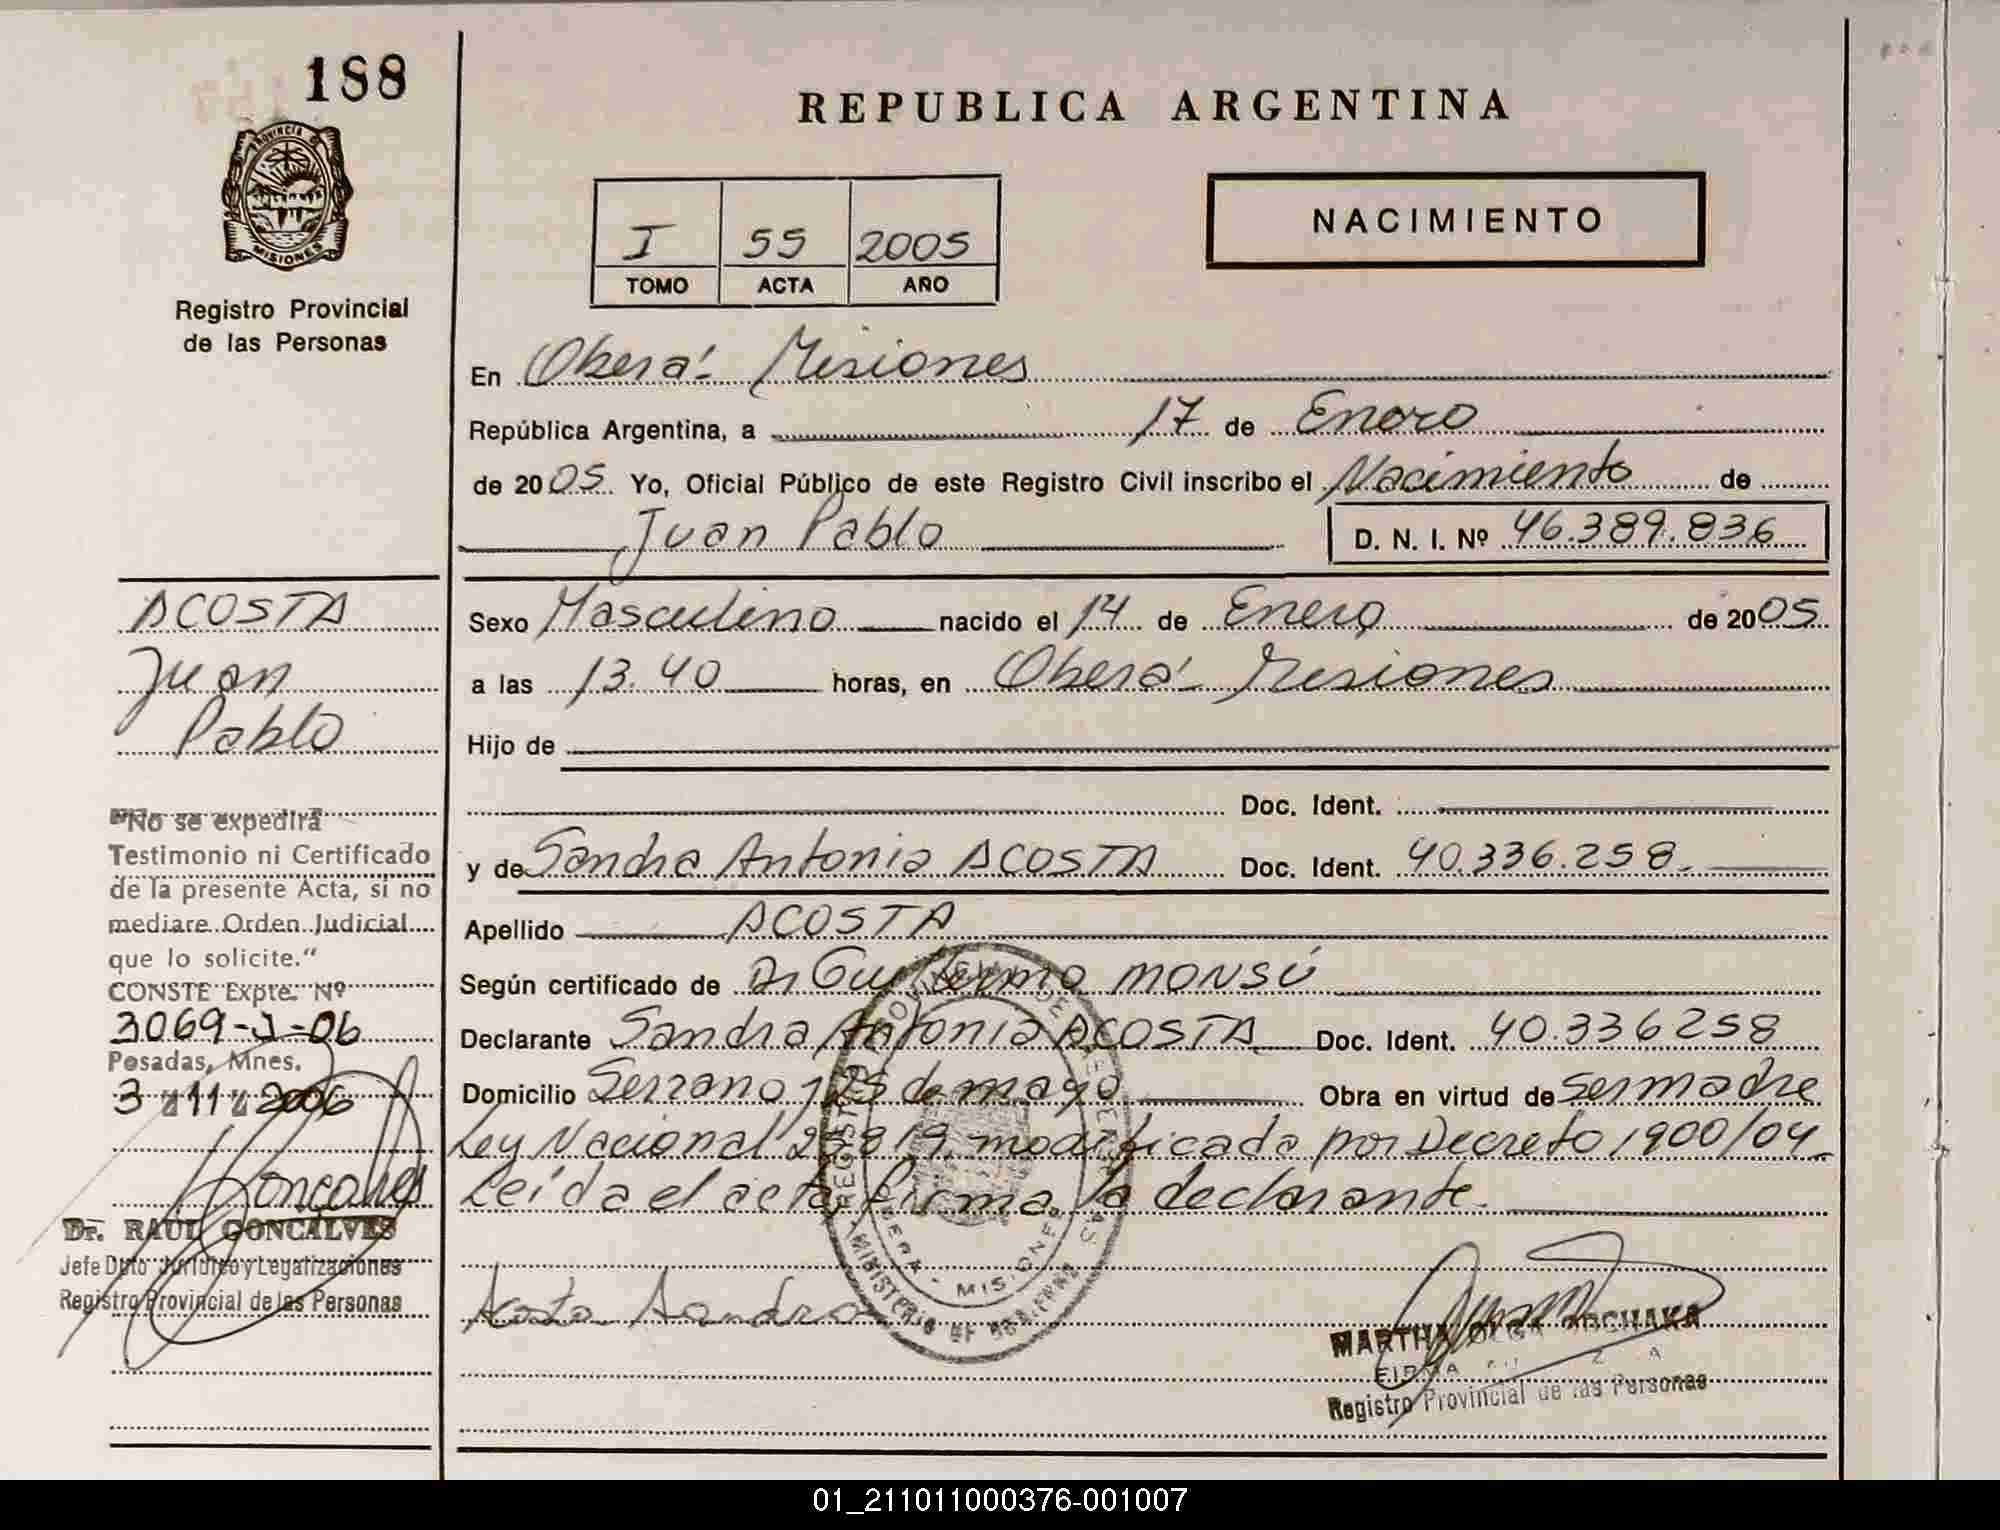 188
PROVINCIA DE
MISIONES
Registro Provincial
de las Personas
REPUBLICA ARGENTINA
I 55 2005
TOMO ACTA AÑO
NACIMIENTO
En Oberá - Misiones
República Argentina, a 17 de Enero
de 2005 Yo, Oficial Público de este Registro Civil inscribo el Nacimiento de
Juan Pablo D. N. I. Nº 46.389.836
ACOSTA
Juan
Pablo
Sexo Masculino nacido el 14 de Enero de 2005
a las 13.40 horas, en Oberá - Misiones
Hijo de
Doc. Ident.
y de Sandra Antonia ACOSTA Doc. Ident. 40.336.258.
Apellido ACOSTA
Según certificado de Dr Guillermo MONSÚ
Declarante Sandra Antonia ACOSTA Doc. Ident. 40.336258
Domicilio Serrano y 25 de mayo Obra en virtud de ser madre
Ley Nacional 25819, modificada por Decreto 1900/04-
Leída el acta firma la declarante.
"No se expedirá
Testimonio ni Certificado
de la presente Acta, si no
mediare Orden Judicial
que lo solicite."
CONSTE Expte. Nº
3069-J-06
Posadas, Mnes.
3 11 2006
Goncalves
Dr. RAUL GONCALVES
Jefe Dpto Jurídico y Legalizaciones
Registro Provincial de las Personas
Acosta Sandra
REGISTRO PROVINCIAL DE LAS PERSONAS
OBERA - MISIONES
MINISTERIO DE GOBIERNO
MARTHA OLGA
FIRMA
Registro Provincial de las Personas
01_211011000376-001007